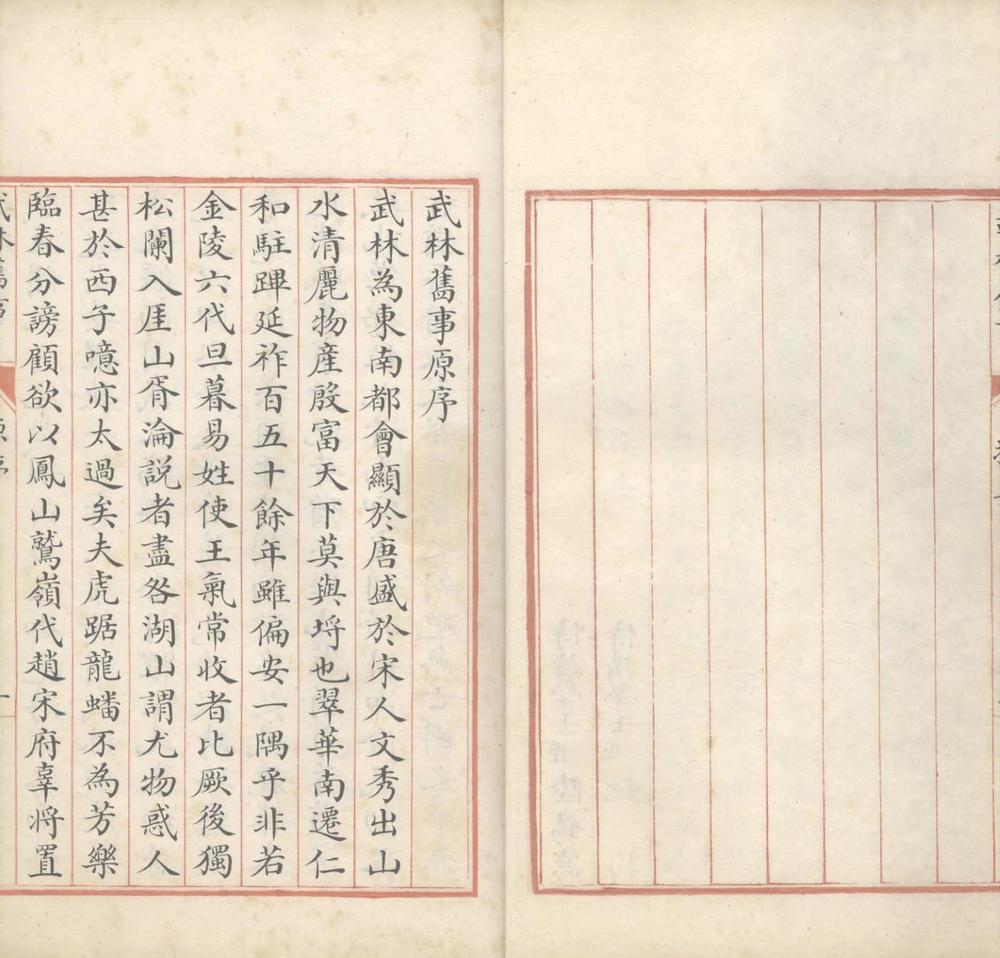 武林舊事原序
武林為東南都會顯於唐盛於宋人文秀出山
水清麗物產殷富天下莫與埒也翠華南遷仁
和駐蹕延祚百五十餘年雖偏安一隅乎非若
金陵六代旦暮易姓使王氣常收者比厥後獨
松闌入厓山胥淪説者盡咎湖山謂尤物惑人
甚於西子噫亦太過矣夫虎踞龍蟠不為芳樂
臨春分謗顧欲以鳳山鷲嶺代趙宋府辜將置
武林舊事
原序
一